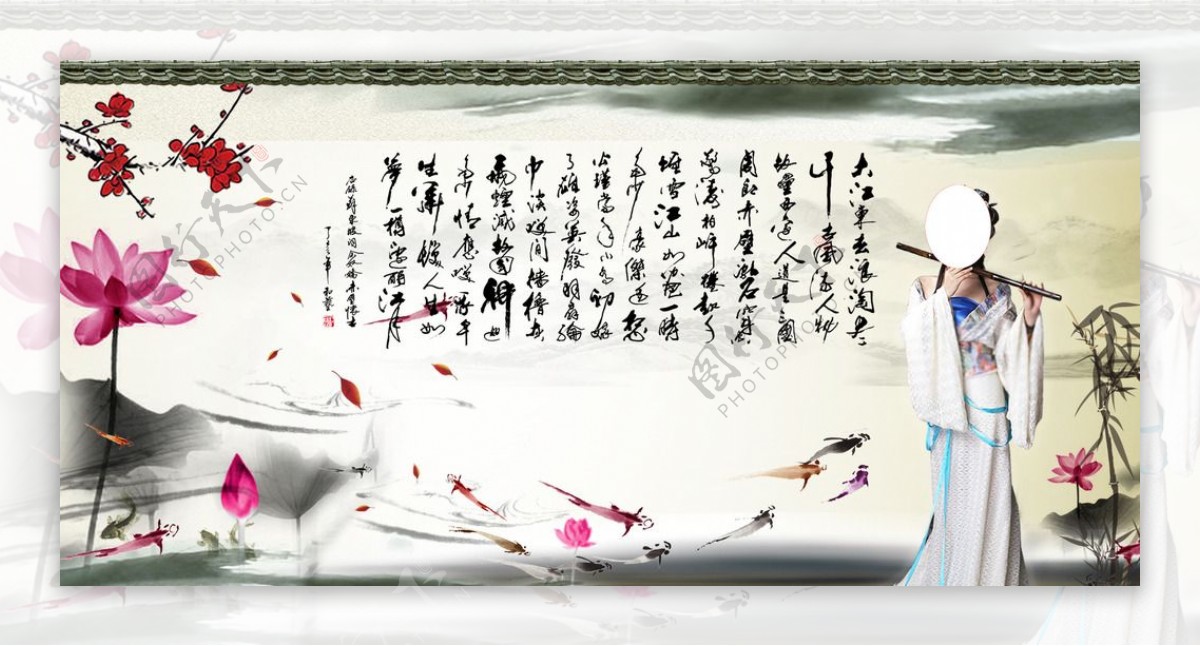 大江東去浪淘盡
千古風流人物
故壘西邊人道是三國
周郎赤壁亂石穿空
驚濤拍岸捲起千
堆雪江山如畫一時
多少豪傑遙想
公瑾當年小喬初嫁
了雄姿英發羽扇綸
巾談笑間檣櫓灰
飛煙滅故國神遊
多情應笑我早
生華髮人生如
夢一樽還酹江月
蘇東坡詞念奴嬌赤壁懷古